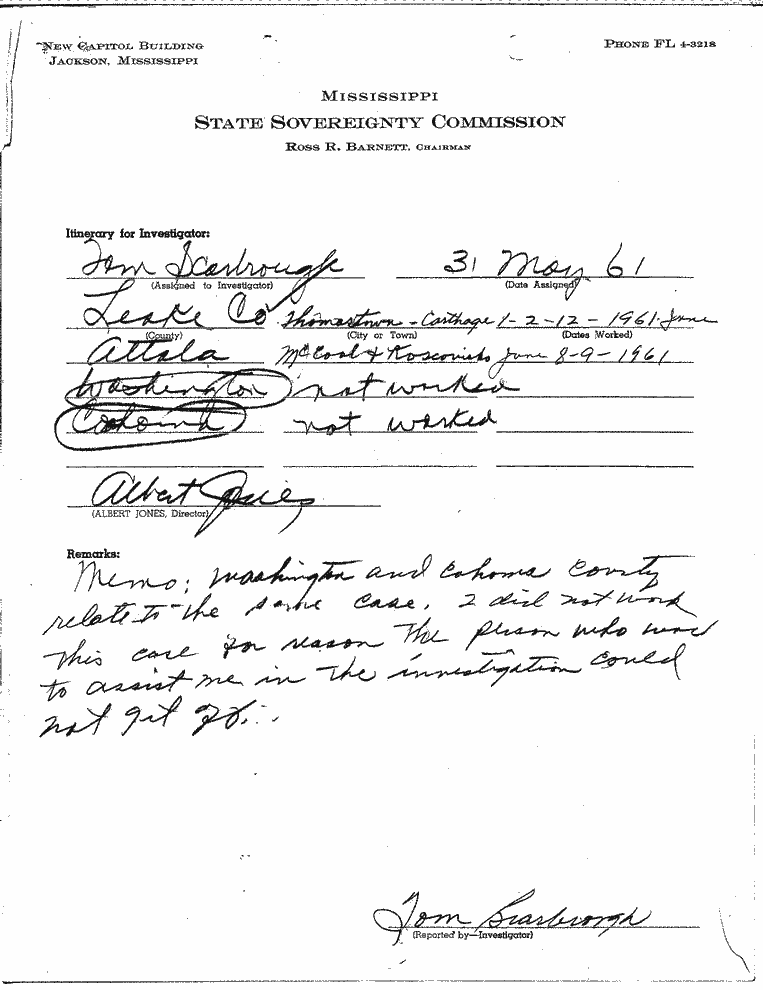 NEW CAPITOL BUILDING
JACKSON, MISSISSIPPI
PHONE FL 4-3218
MISSISSIPPI
STATE SOVEREIGNTY COMMISSION
ROSS R. BARNETT, CHAIRMAN
Itinerary for Investigator:
Tom Scarbrough 31 May 61
(Assigned to Investigator) (Date Assigned)
Leake Co Thomastown - Carthage 1-2-12-1961 June
(County) (City or Town) (Dates Worked)
Attala McCool & June 8-9-1961
Washington not worked
not worked
Albert Jones
(ALBERT JONES, Director)
Remarks:
Memo: Washington and Cohoma County
relate to the same case. I did not work
this case for reason the person who was
to assist me in the investigation could
not get off.
Tom Scarbrough
(Reported by—Investigator)